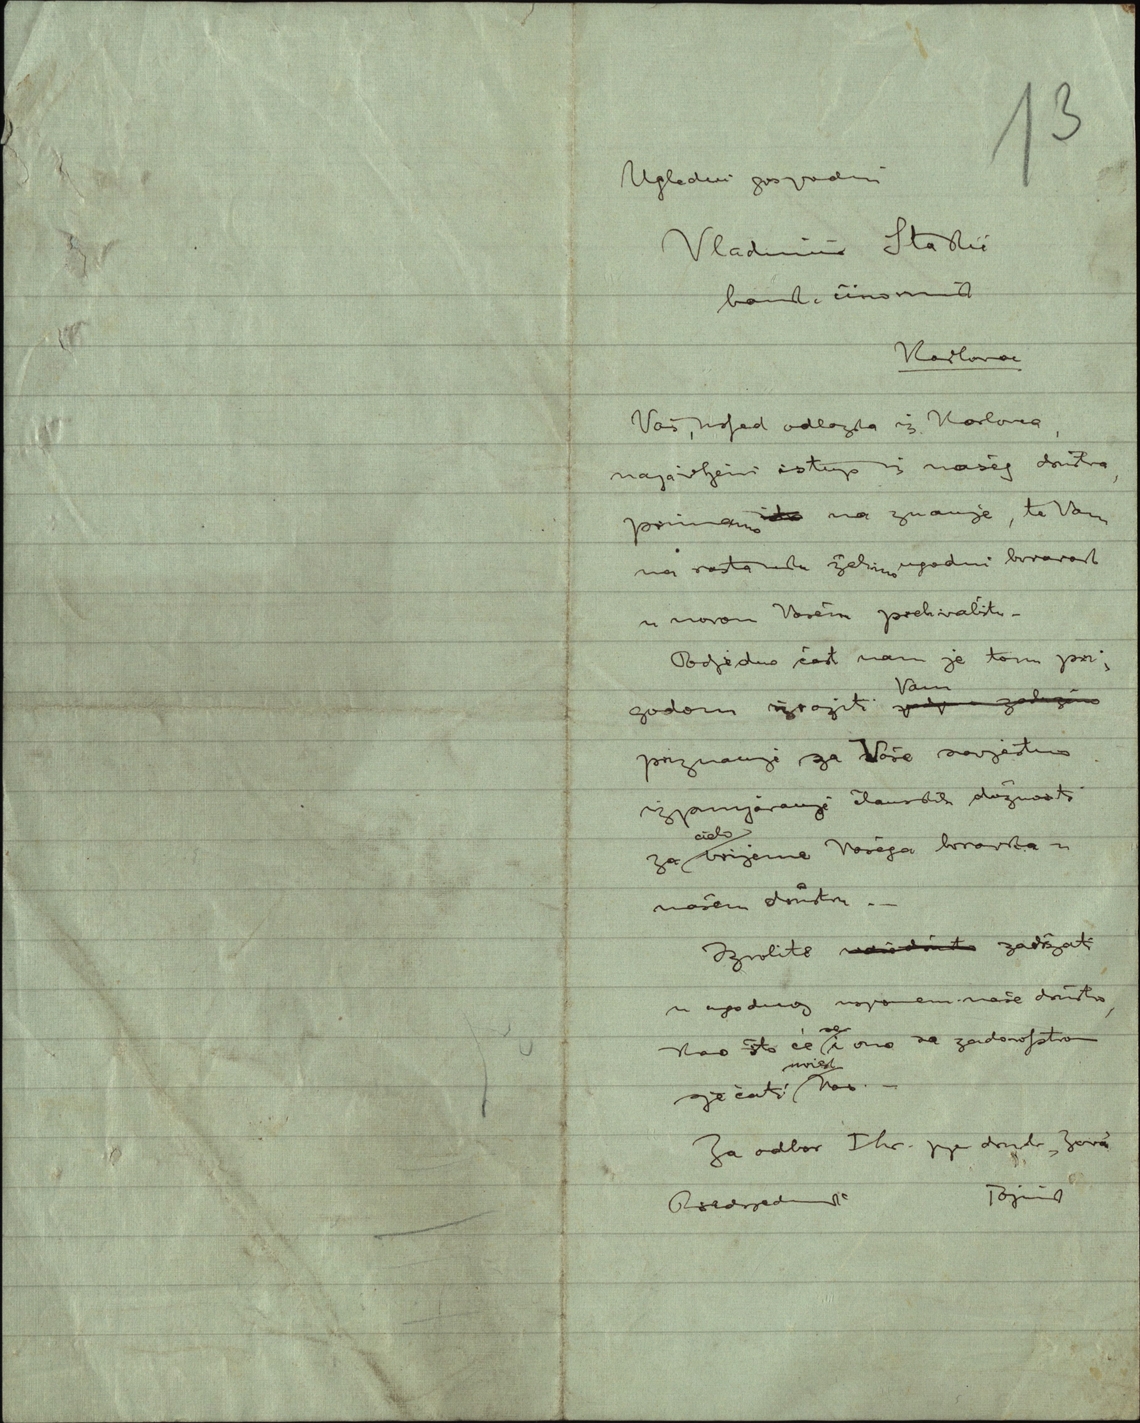 13
Ugledni gospodin
Vladimir Stakić
bank. činovnik
Karlovac
Vaš, usljed odlazka iz Karlovca,
najavljeni istup iz našeg družtva,
primamo na znanje, te Vam
na rastanku želimo ugodni boravak
u novom Vašem prebivalištu –
Podjedno čast nam je tom pri-
godom izraziti Vam
priznanje za Vaše savjestno
izpunjavanje članskih dužnosti
za cielo vrijeme Vašega boravka u
našem družtvu. –
Izvolite zadržati
u ugodnoj uspomeni naše družtvo,
kao što će se i ono sa zadovoljstvom
sjećati uviek Vas. –
Za odbor I hr. pjev. družt. „Zora"
Predsjednik Tajnik